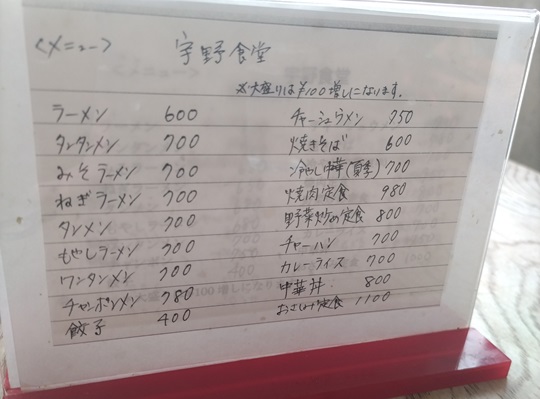 <メニュー> 宇野食堂
※大盛りは¥100増しになります。
ラーメン 600
タンタンメン 700
みそラーメン 700
ねぎラーメン 700
タンメン 700
もやしラーメン 700
ワンタンメン 700
チャンポンメン 780
餃子 400
チャーシューメン 750
焼きそば 600
冷やし中華(夏季) 700
焼肉定食 980
野菜炒め定食 800
チャーハン 700
カレーライス 700
中華丼 800
定食 1100